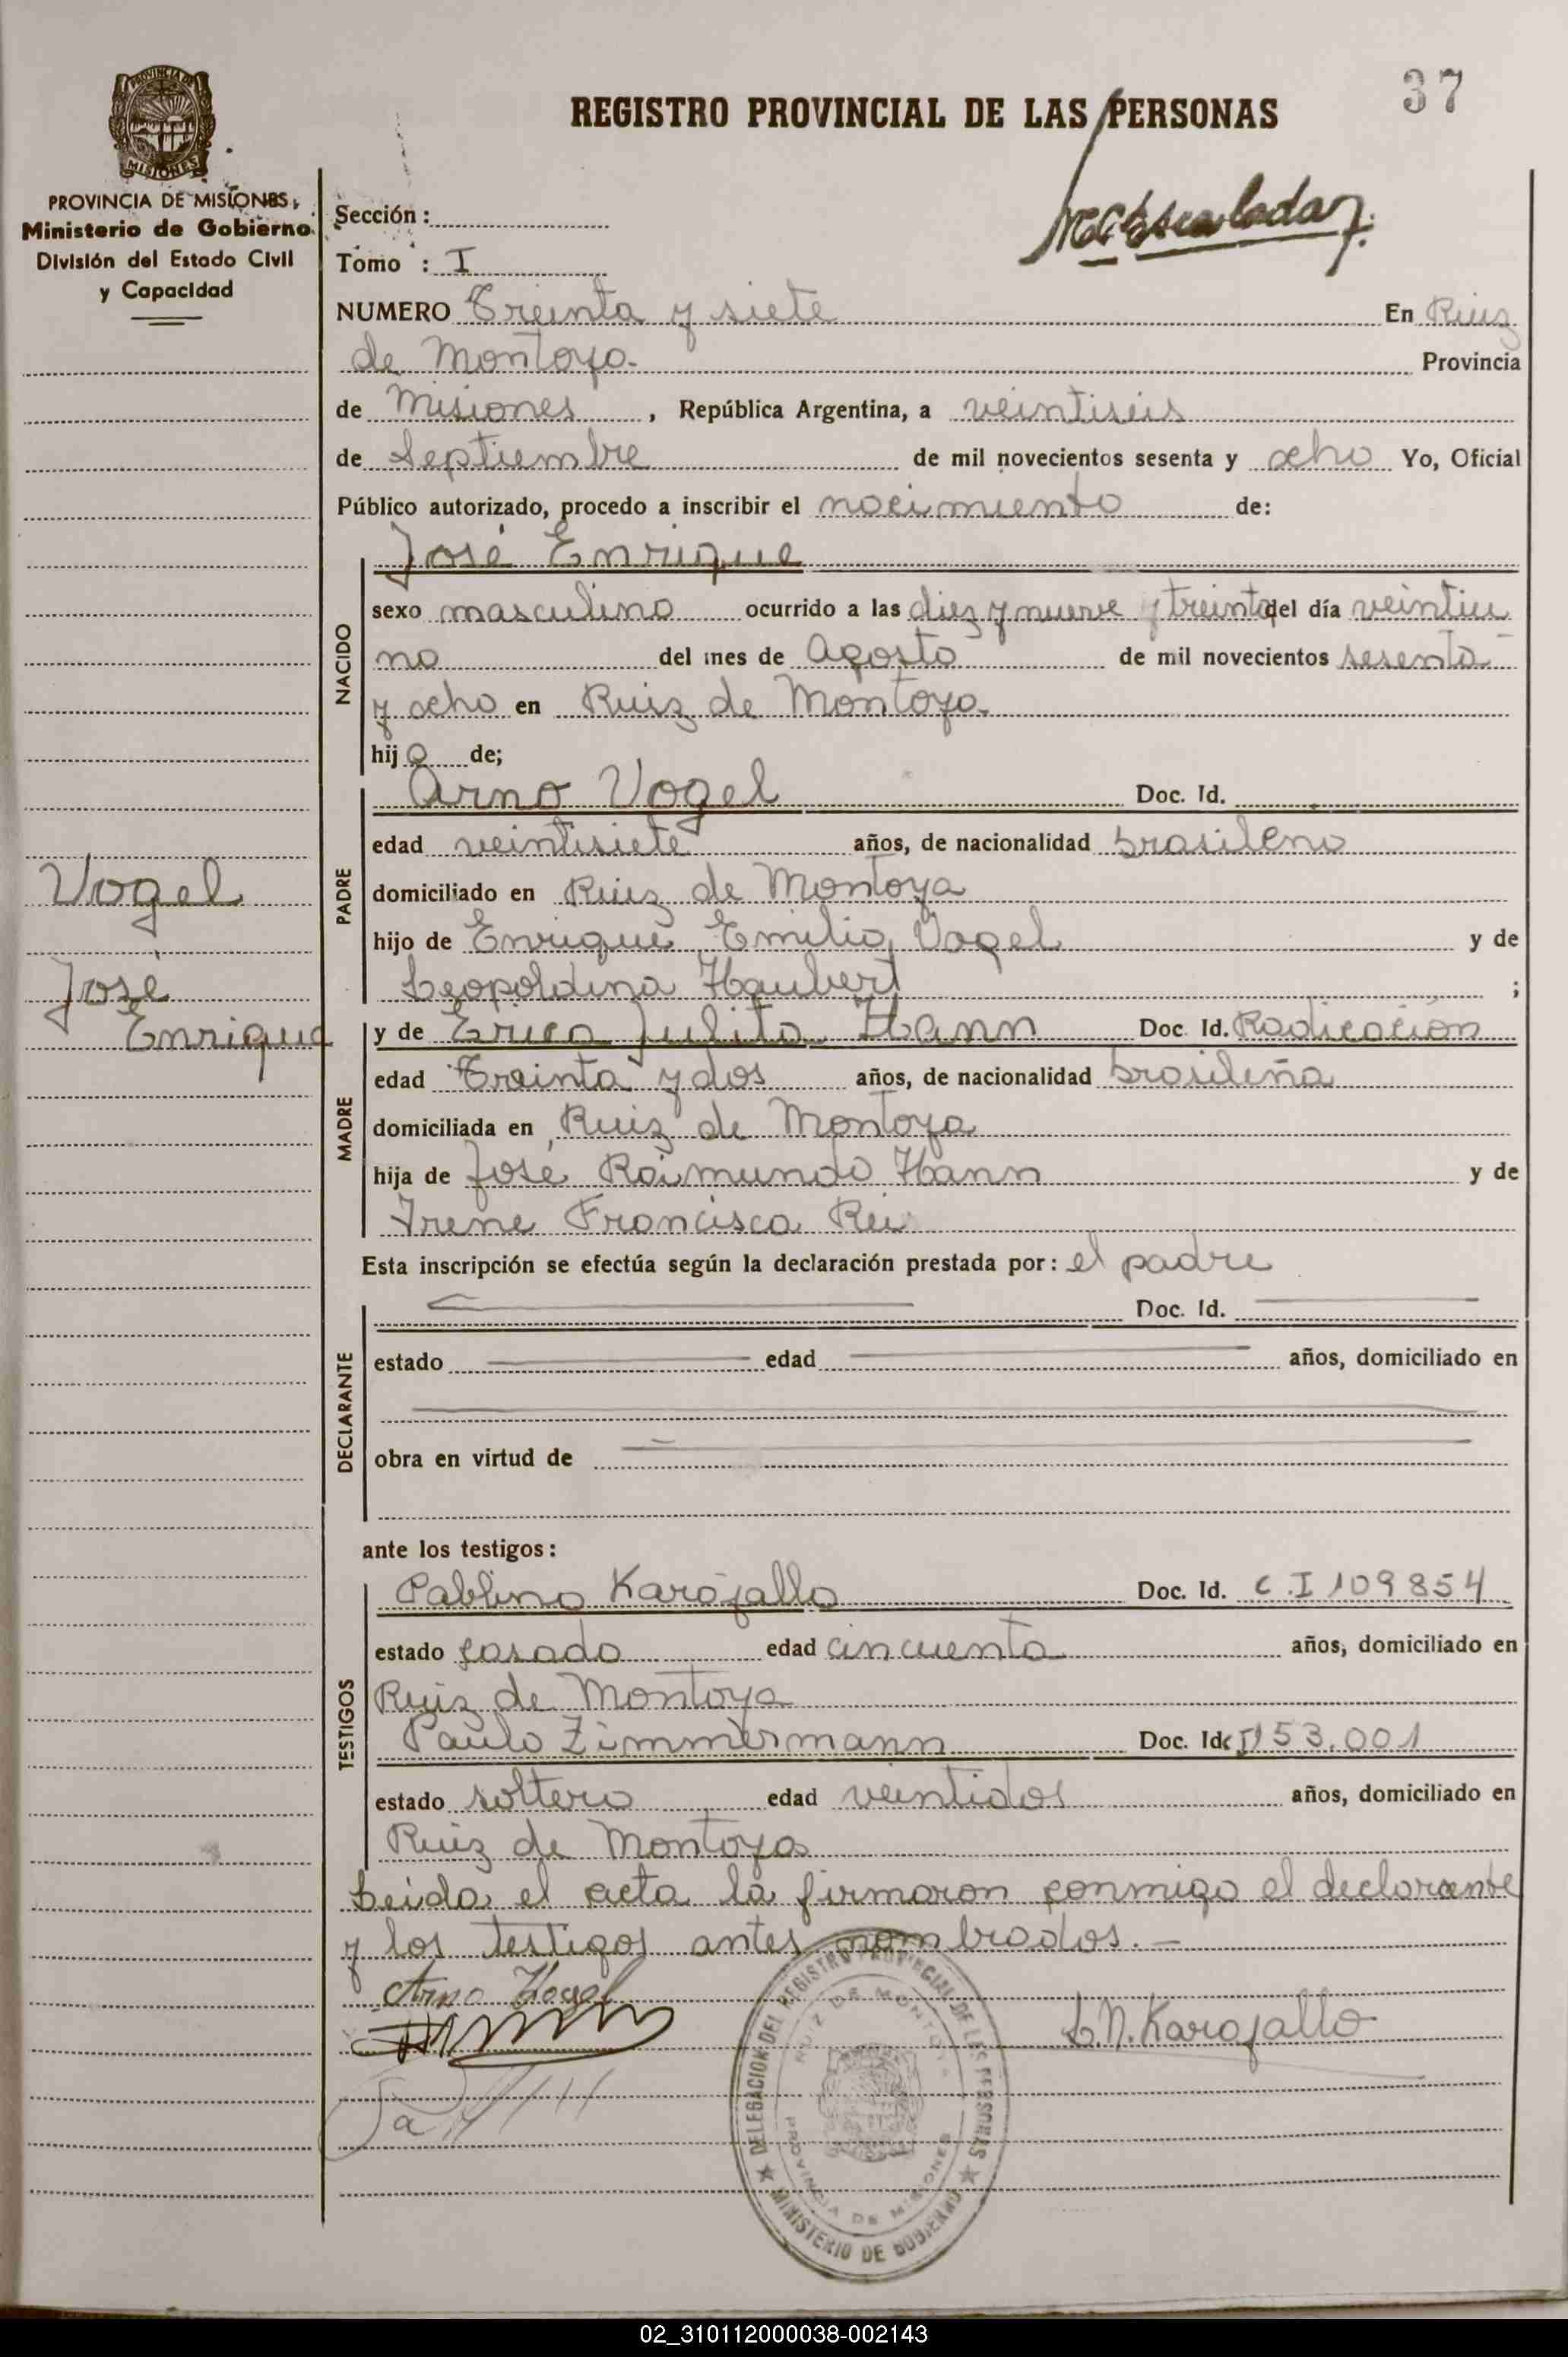 37
REGISTRO PROVINCIAL DE LAS PERSONAS
PROVINCIA DE MISIONES
MISIONES
PROVINCIA DE MISIONES
Ministerio de Gobierno
División del Estado Civil
y Capacidad
Sección:
Tomo : I
NUMERO Treinta y siete En Ruiz
de Montoya Provincia
de Misiones, República Argentina, a veintiseis
de Septiembre de mil novecientos sesenta y ocho Yo, Oficial
Público autorizado, procedo a inscribir el nacimiento de:
NACIDO
José Enrique
sexo masculino ocurrido a las diez y nueve y treinta del día veintiu
no del mes de Agosto de mil novecientos sesenta
y ocho en Ruiz de Montoya
hijo de;
PADRE
Arno Vogel Doc. Id.
edad veintisiete años, de nacionalidad brasileno
domiciliado en Ruiz de Montoya
hijo de Enrique Emilio Vogel y de
Leopoldina Haubert ;
Vogel
José
Enrique
MADRE
y de Erica Julita Hann Doc. Id. Radicación
edad Treinta y dos años, de nacionalidad brasileña
domiciliada en Ruiz de Montoya
hija de José Raimundo Hann y de
Irene Francisca Rei
Esta inscripción se efectúa según la declaración prestada por: el padre
DECLARANTE
Doc. Id.
estado edad años, domiciliado en
obra en virtud de
ante los testigos:
TESTIGOS
Pablino Karajallo Doc. Id. C.I 109854
estado casado edad cincuenta años, domiciliado en
Ruiz de Montoya
Paulo Zimmermann Doc. Id. 153.001
estado soltero edad veintidos años, domiciliado en
Ruiz de Montoya
Leida el acta la firmaron conmigo el declarante
y los testigos antes nombrados.—
Arno Vogel
Karajallo
DELEGACION DEL REGISTRO PROVINCIAL DE LAS PERSONAS
RUIZ DE MONTOYA
PROVINCIA DE MISIONES
MINISTERIO DE GOBIERNO
02_310112000038-002143